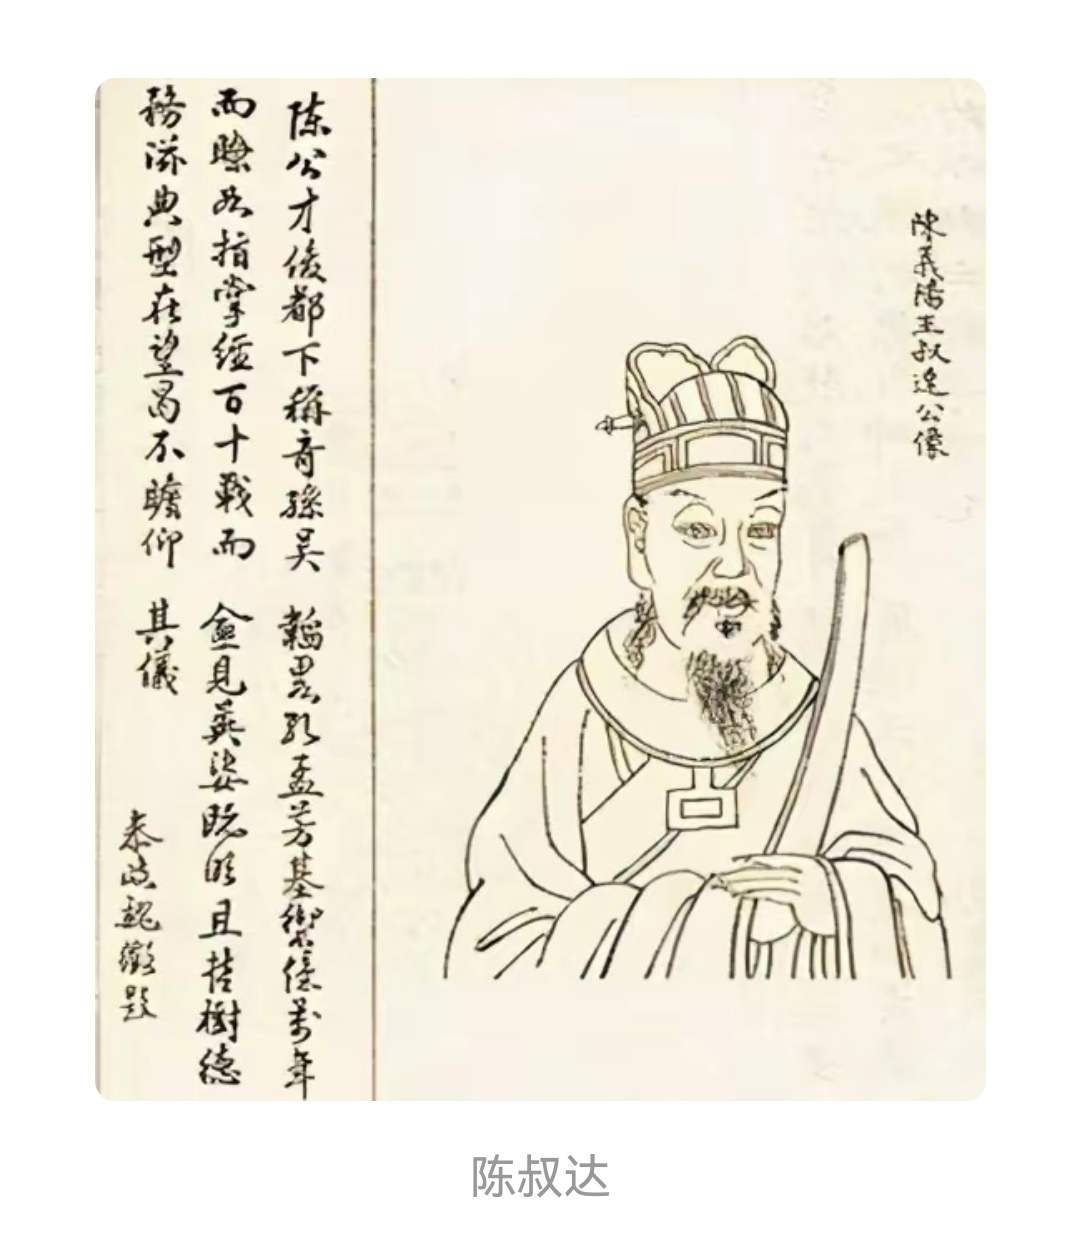 陳義陽王叔達公像
陈公才俊都下稱奇孫吴韜畧孔孟芳基禦侮萬年
而瞭如指掌經百十戰而僉見英姿既明且哲樹德
務滋典型在望曷不瞻仰其儀
魏徵題
陈叔达